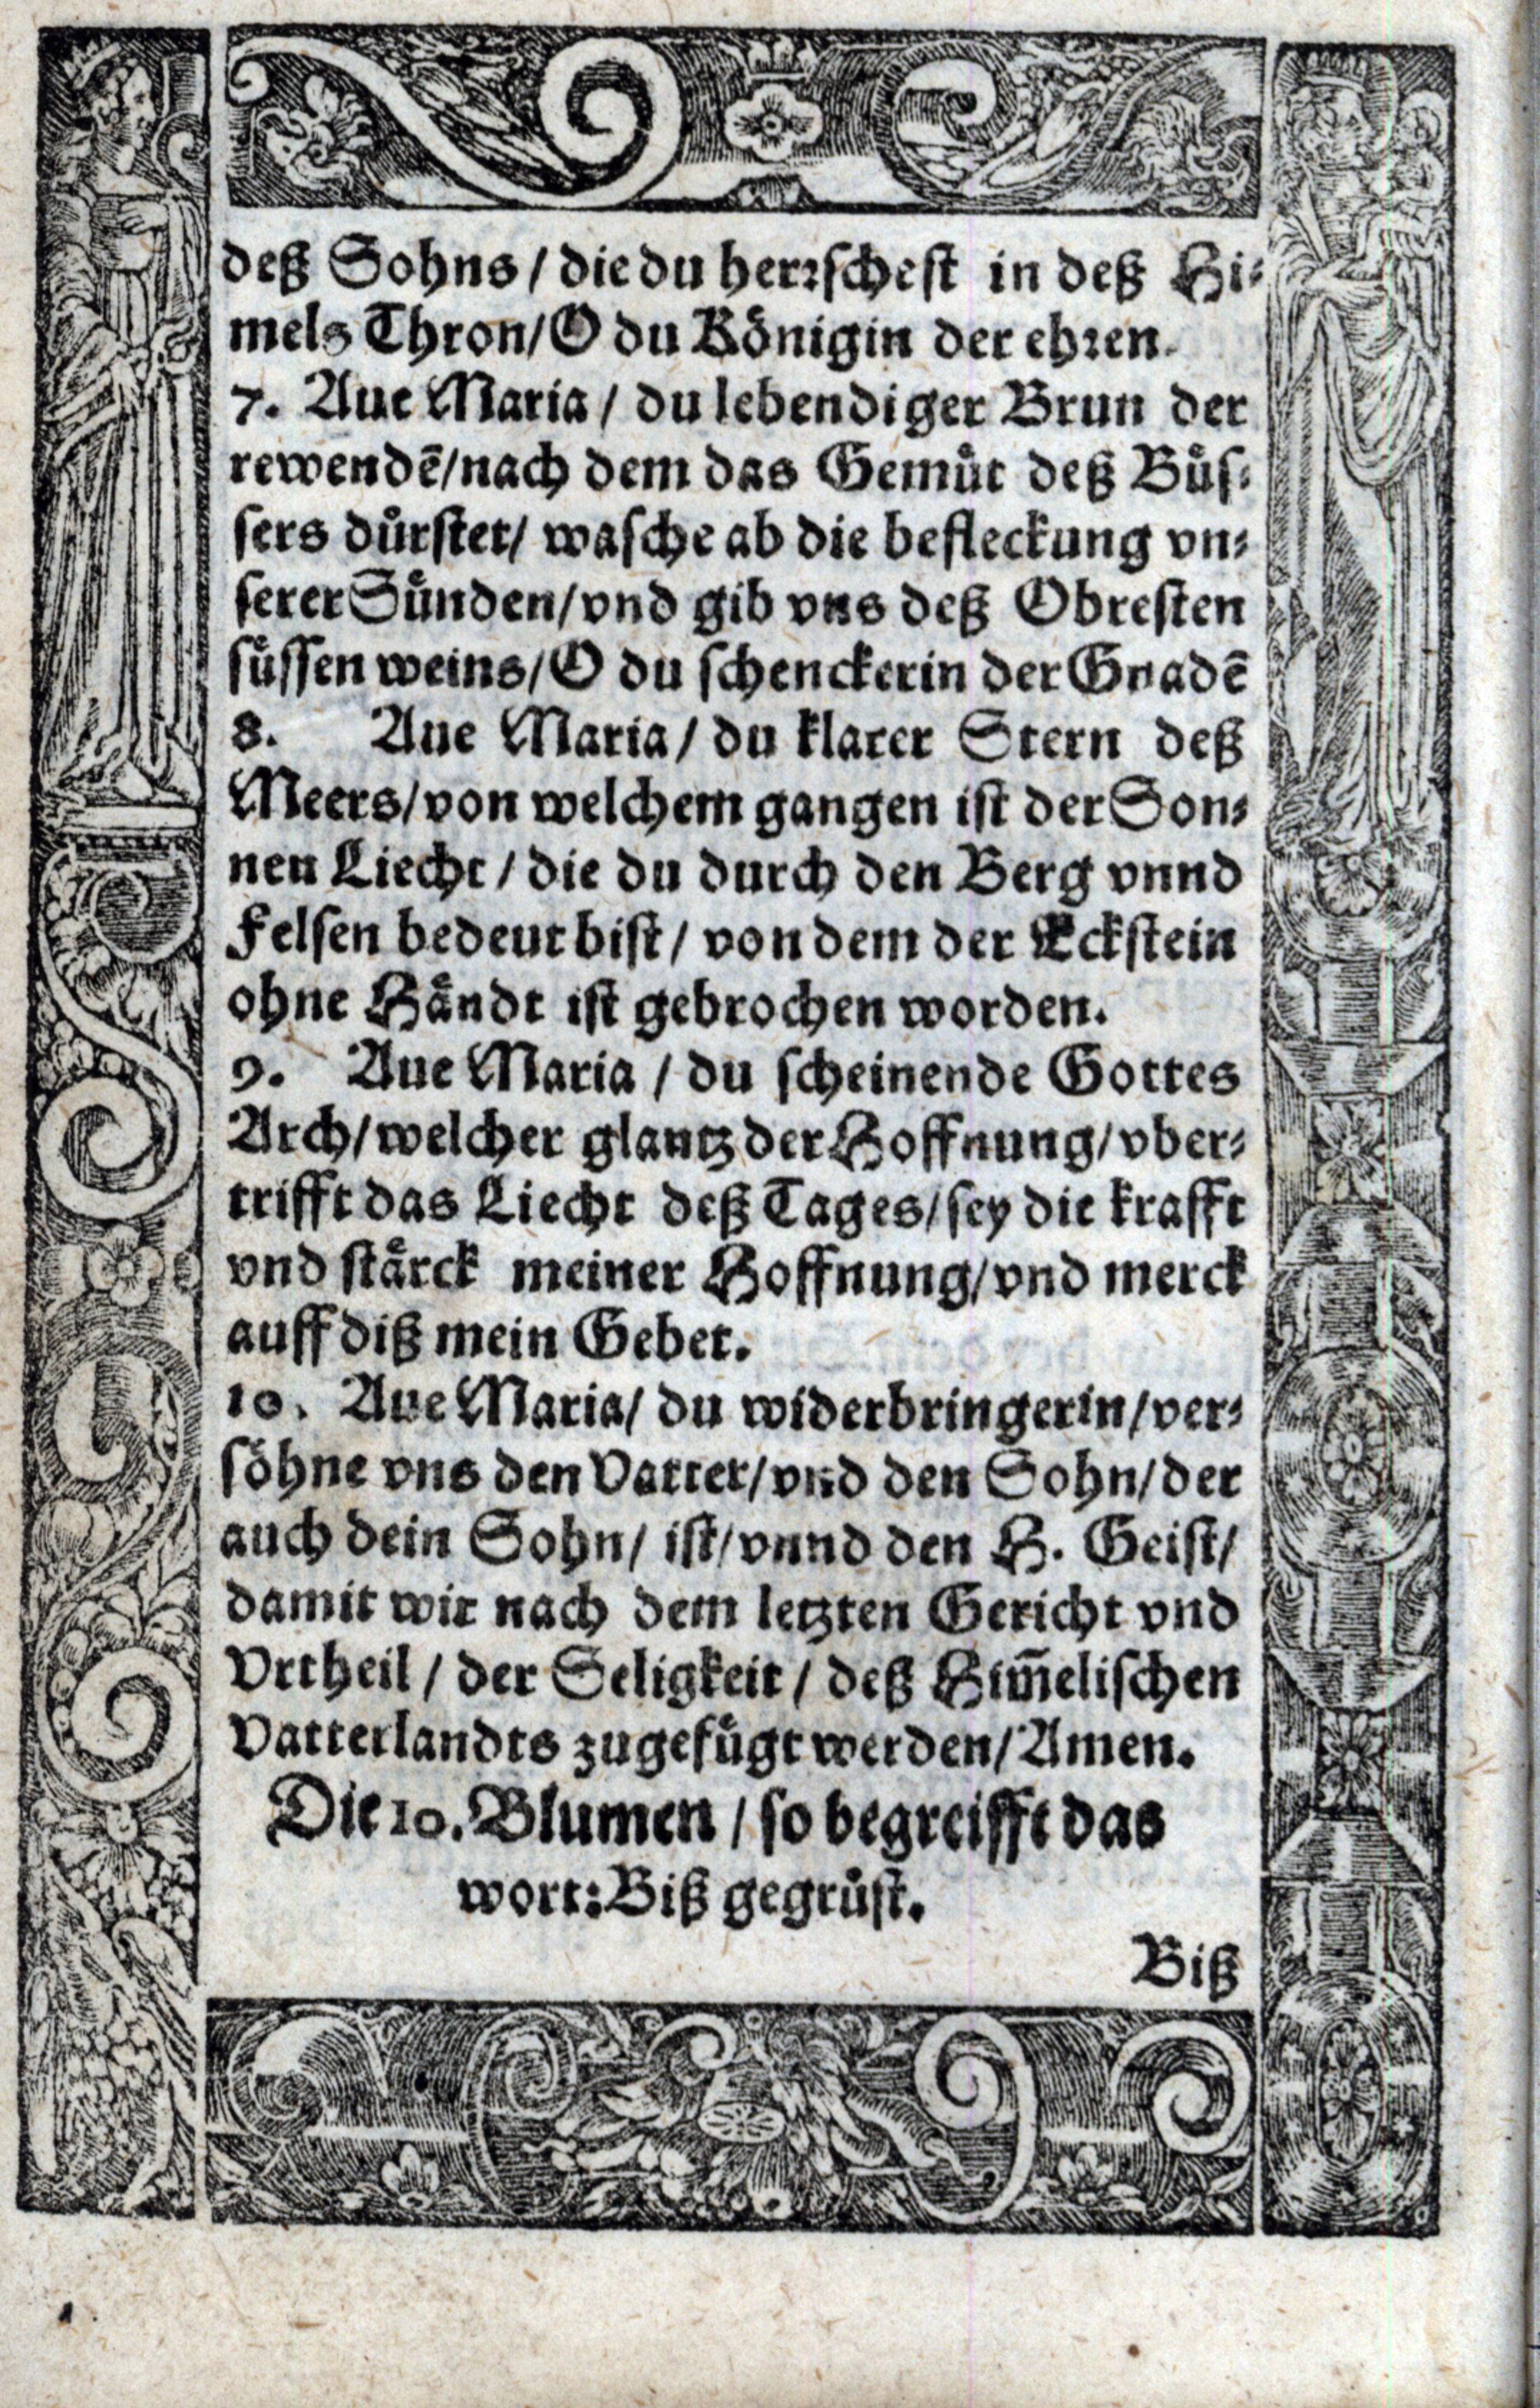 deß Sohns / die du herꝛschest in deß Hi⸗
mels Thron / O du Koͤnigin der ehꝛen.
7. Aue Maria / du lebendiger Brun der
rewendē / nach dem das Gemuͤt deß Buͤs⸗
sers duͤrstet / wasche ab die befleckung vn⸗
serer Suͤnden / vnd gib vns deß Obresten
suͤssen weins / O du schenckerin der Gnadē
8. Aue Maria / du klarer Stern deß
Meers / von welchem gangen ist der Son⸗
nen Liecht / die du durch den Berg vnnd
Felsen bedeut bist / von dem der Eckstein
ohne Haͤndt ist gebrochen worden.
9. Aue Maria / du scheinende Gottes
Arch / welcher glantz der Hoffnung / vber⸗
trifft das Liecht deß Tages / sey die krafft
vnd staͤrck meiner Hoffnung / vnd merck
auff diß mein Gebet.
10. Aue Maria / du widerbringerin / ver⸗
soͤhne vns den Vatter / vnd den Sohn / der
auch dein Sohn / ist / vnnd den H. Geist /
damit wir nach dem letzten Gericht vnd
Vrtheil / der Seligkeit / deß Him̄elischen
Vatterlandts zugefuͤgt werden / Amen.
Die 10. Blumen / so begreifft das
wort: Biß gegruͤst.
Biß